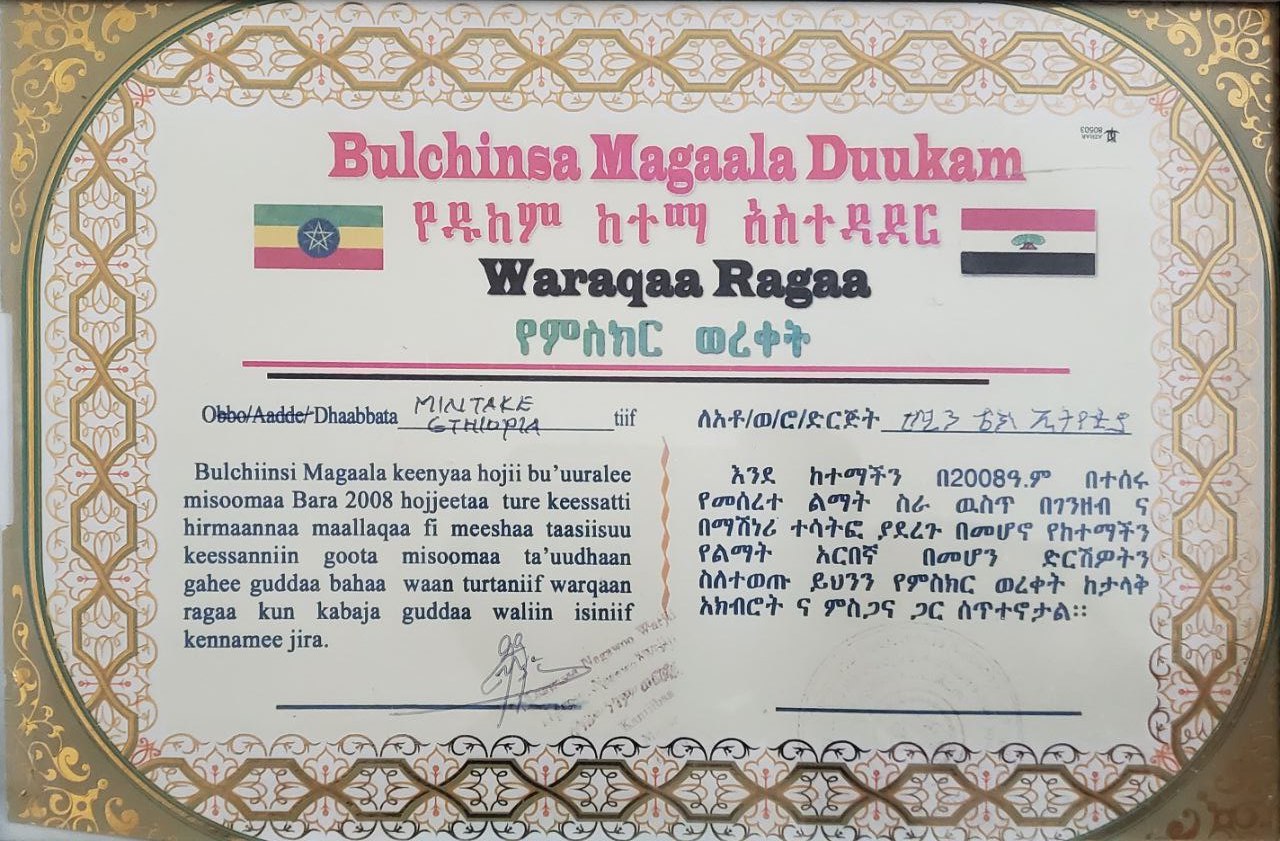 AZHAR
80503
Bulchinsa Magaala Duukam
የዱከም ከተማ አስተዳደር
Waraqaa Ragaa
የምስክር ወረቀት
Obbo/Aadde/Dhaabbata MINTAKE ETHIOPIA tiif
Bulchiinsi Magaala keenyaa hojii bu'uuralee
misoomaa Bara 2008 hojjeetaa ture keessatti
hirmaannaa maallaqaa fi meeshaa taasiisuu
keessanniin goota misoomaa ta'uudhaan
gahee guddaa bahaa waan turtaniif warqaan
ragaa kun kabaja guddaa waliin isiniif
kennamee jira.
ለአቶ/ወ/ሮ/ድርጅት ኢትዮጵያ
እንደ ከተማችን በ2008ዓ.ም በተሰሩ
የመሰረተ ልማት ስራ ዉስጥ በገንዘብ ና
በማሽነሪ ተሳትፎ ያደረጉ በመሆኖ የከተማችን
የልማት አርበኛ በመሆን ድርሽዎትን
ስለተወጡ ይህንን የምስክር ወረቀት ከታላቅ
አክብሮት ና ምስጋና ጋር ሰጥተኖታል።
Nagawoo